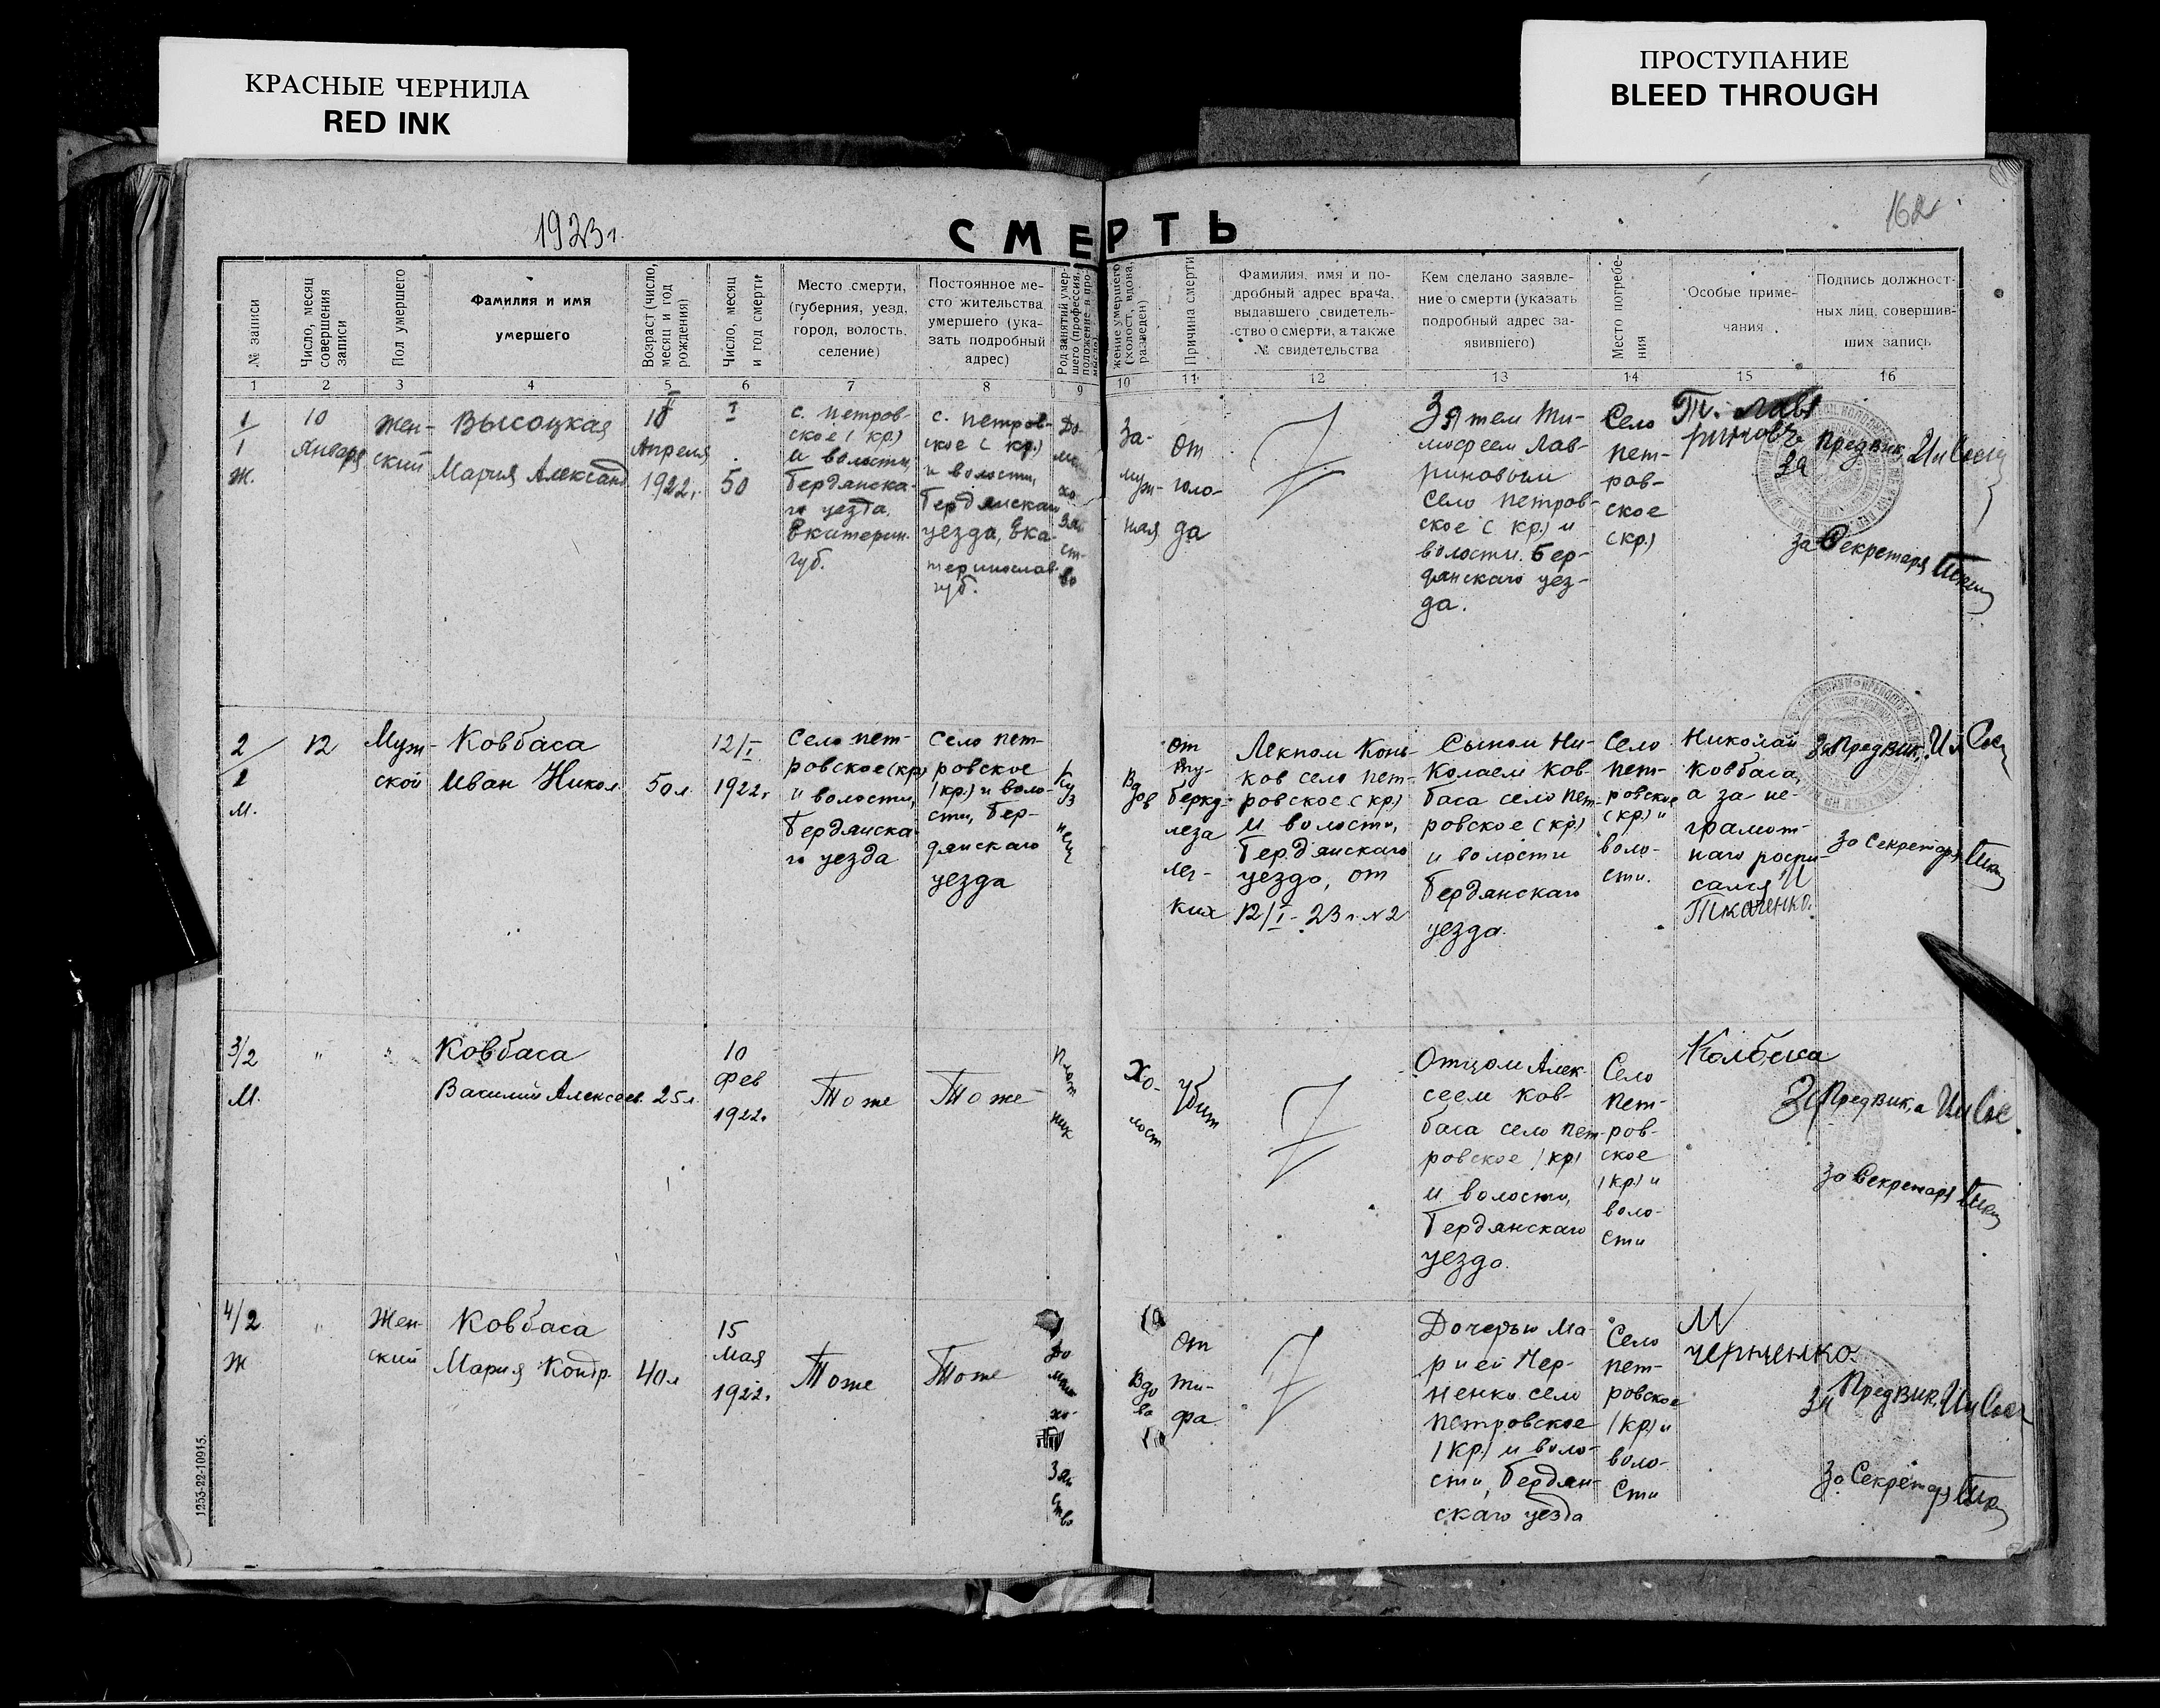 КРАСНЫЕ ЧЕРНИЛА
RED INK
ПРОСТУПАНИЕ
BLEED THROUGH
1923 г.
СМЕРТЬ
162
№ записи
Число, месяц
совершения
записи
Пол умершего
Фамилия и имя
умершего
Возраст (число,
месяц и год
рождения)
Число, месяц
и год смерти
Место смерти,
(губерния, уезд,
город, волость,
селение)
Постоянное ме-
сто жительства
умершего (ука-
зать подробный
адрес)
Род занятий умер-
шего (профессия,
положение в про-
жение умершего
(холост, вдова,
разведен)
Причина смерти
Фамилия, имя и по-
дробный адрес врача,
выдавшего свидетель-
ство о смерти, а также
№ свидетельства
Кем сделано заявле-
ние о смерти (указать
подробный адрес за-
явившего)
Место погребе-
ния
Особые приме-
чания
Подпись должност-
ных лиц, совершив-
ших запись
1 2 3 4 5 6 7 8 9 10 11 12 13 14 15 16
1
1
Ж.
10
Января
Жен-
ский
Высоцкая
Мария Александ
10
Апреля
1922 г.
I
50
с. Петров-
ское (кр)
и волости,
Бердянска-
го уезда.
Екатерин.
губ.
с. Петров-
ское (кр)
и волости,
Бердянскаго
уезда, Ека-
теринослав
губ.
До
ма
хо
зяй
ст-
во
За-
муж-
ная
От
голо-
да
Зятем Ти-
мофеем Лав-
риновым
село Петров-
ское (кр) и
волости. Бер-
дянскаго уез-
да.
Село
Пет-
ров-
ское
(кр)
Т. Лав
риновъ
За Предвик,
За Секретаря
2
1
М.
12
Муж-
ской
Ковбаса
Иван Никол.
50 л.
12/I
1922 г
Село Пет-
ровское (кр)
и волости,
Бердянска-
го уезда
Село Пет-
ровское
(кр.) и воло-
сти, Бер-
дянскаго
уезда
Куз
нец
Вдов
от
ту-
берку-
леза
лег-
ких
Лекпом Конь-
ков село Пет-
ровское (кр)
и волости,
Бердянскаго
уезда, от
12/I - 23 г. №2
Сыном Ни-
колаем Ков-
баса село Пет-
ровское (кр)
и волости
Бердянскаго
уезда.
Село
Пет-
ровское
(кр) и
воло-
сти.
Николай
Ковбаса,
а за не-
грамот-
наго роспи-
сался И
Ткаченко.
За Предвик,
За Секретаря
3/2
М.
"
"
Ковбаса
Василий Алексеев.
25 л.
10
Фев
1922 г
Тоже
Тоже
Плот
ник
Хо-
лост
Убит
Отцом Алек-
сеем Ков-
баса село Пет-
ровское (кр)
и волости,
Бердянскаго
уезда.
Село
Пет-
ров-
ское
(кр) и
воло-
сти
За Предвик,а
За Секретаря
4/2
Ж
"
Жен-
ский
Ковбаса
Мария Кондр.
40 л
15
мая
1922 г.
Тоже
Тоже
До
маш
хо-
Зяй
ство
Вдо
ва
От
ти-
фа
Дочерью Ма-
рией Чер-
ненко село
Петровское
(кр) и воло-
сти, Бердян-
скаго уезда
Село
Пет-
ровское
(кр) и
воло-
сти
М
Черненко.
За Предвик,
За Секретаря
1253-22-10915.